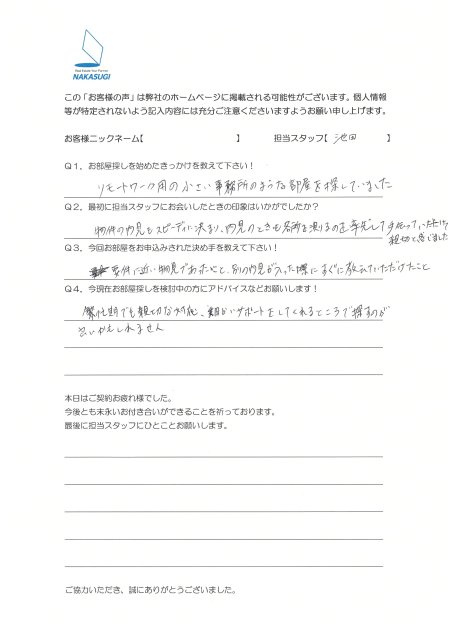 Real Estate Your Partner
NAKASUGI
この「お客様の声」は弊社のホームページに掲載される可能性がございます。個人情報
等が特定されないよう記入内容には充分ご注意くださいますようお願い申し上げます。
お客様ニックネーム【 】 担当スタッフ【 池田 】
Q１．お部屋探しを始めたきっかけを教えて下さい！
リモートワーク用の小さい事務所のような部屋を探していました
Q２．最初に担当スタッフにお会いしたときの印象はいかがでしたか？
物件の内見もスピーディに決まり、内見のときも
親切と感じました
Q３．今回お部屋をお申込みされた決め手を教えて下さい！
要件に近い物見であったことと、別の内見が入った際にすぐに教えていただけたこと
Q４．今現在お部屋探しを検討中の方にアドバイスなどお願いします！
繁忙期でも親切な対応、細かいサポートをしてくれるところで探すのが
良いかもしれません
本日はご契約お疲れ様でした。
今後とも末永いお付き合いができることを祈っております。
最後に担当スタッフにひとことお願いします。
ご協力いただき、誠にありがとうございました。